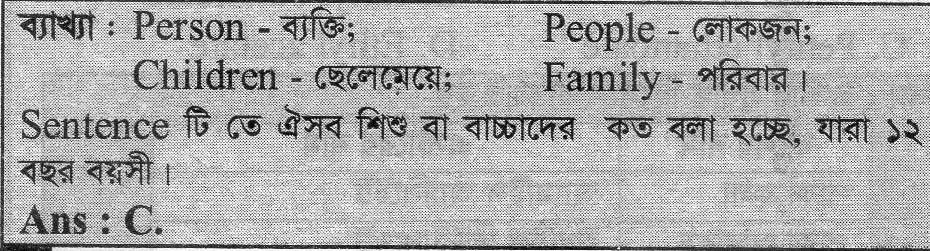 ব্যাখ্যা : Person - ব্যক্তি; People - লোকজন;
Children - ছেলেমেয়ে; Family - পরিবার।
Sentence টি তে ঐসব শিশু বা বাচ্চাদের কত বলা হচ্ছে, যারা ১২
বছর বয়সী।
Ans : C.